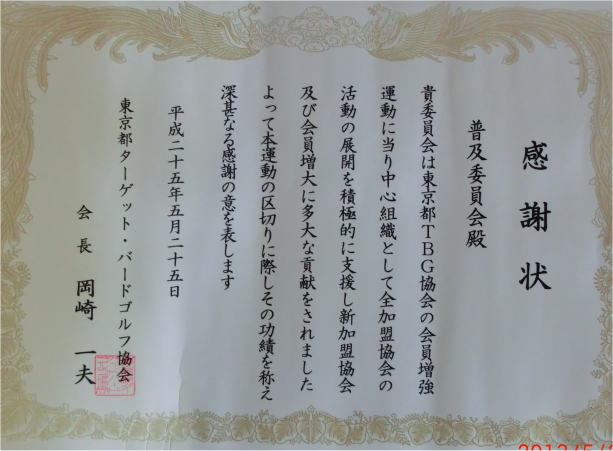 感謝状
普及委員会殿
貴委員会は東京都TBG協会の会員増強
運動に当り中心組織として全加盟協会の
活動の展開を積極的に支援し新加盟協会
及び会員増大に多大な貢献をされました
よって本運動の区切りに際しその功績を称え
深甚なる感謝の意を表します
平成二十五年五月二十五日
東京都ターゲット・バードゴルフ協会
会長 岡崎 一夫